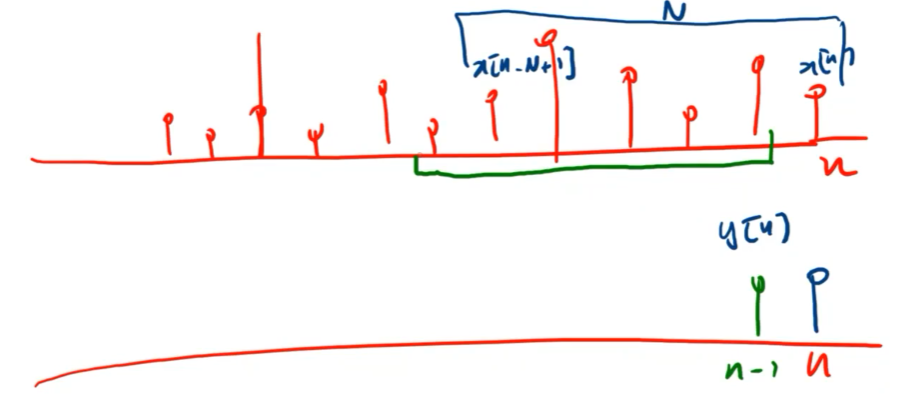 N
x[n-N+1] x[n]
n
y[n]
n-1 n